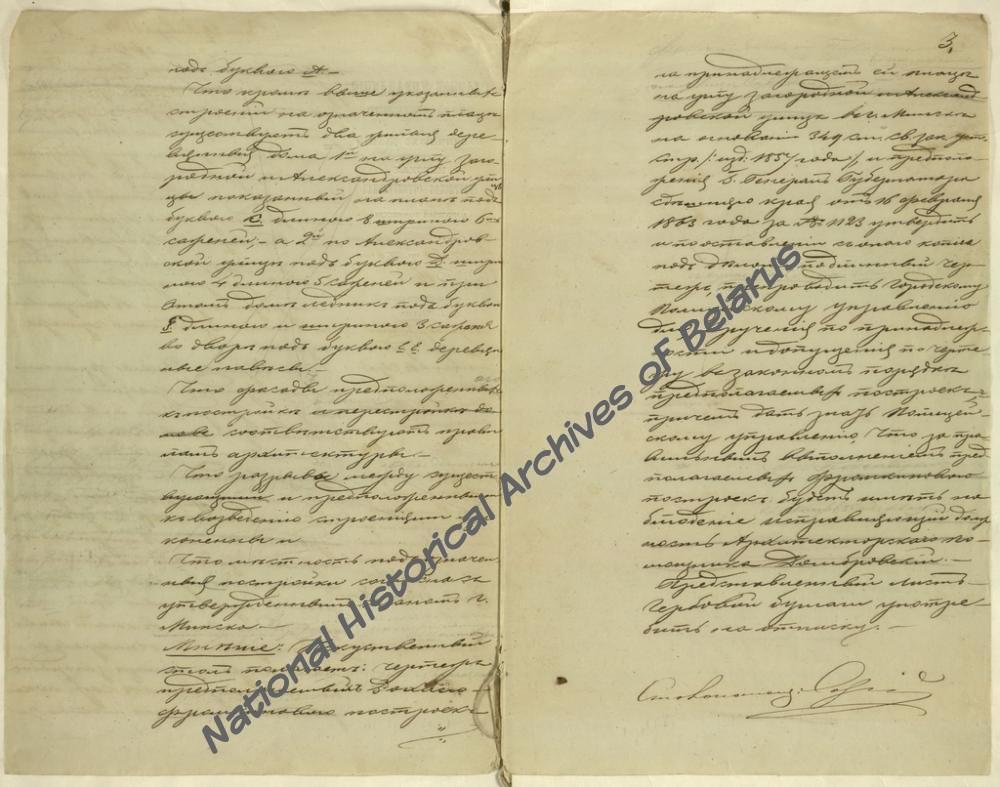 подъ буквою А. —
Что кромѣ выше указанныхъ
строеній на означенномъ плацу
существуютъ два
деревянныя дома 1й на углу Заго-
родной и Александровской ули-
цы показанный на планѣ подъ
буквою С длиною 8 шириною 6
саженей, — а 2й по Александров-
ской улицѣ подъ буквою D шири-
ною 4 длиною 5 саженей и при
этомъ домѣ ледникъ подъ буквою
F длиною и шириною 3 сажени
во дворѣ подъ буквою деревян-
ные навѣсы. —
Что фасады предположенныхъ
къ постройкѣ и перестройкѣ до-
мовъ соотвѣтствуютъ прави-
ламъ архитектуры. —
Что разрывы между сущест-
вующими и предположенными
къ возведенію строеніями
конны и
Что мѣстность подъ означен-
ныя постройки согласна съ
утвержденнымъ планомъ г.
Минска. —
Мнѣніе: Искуственный
столъ полагаетъ: чертежъ
предполагаемыхъ
Франкиновою построекъ
3.
на принадлежащемъ ей плацу
на углу Загородной и Александ-
ровской улицъ въ г. Минскѣ
на основаніи 349 ст. Св. зак. уст.
стр. /: изд. 1857 года /, и предполо-
женія Г. Генералъ Губернатора
сѣверо края отъ 16 февраля
1863 года за № 1123 утвердить
и по оставленіи съ оного копіи
подъ дѣломъ, подлинный чер-
тежъ препроводить Городскому
Полицейскому Управленію
для врученія по принадлеж-
ности и допущенія по черте-
жу въ законномъ порядкѣ
предполагаемыхъ построекъ,
причемъ дать знать Полицей-
скому управленію что за пра-
вильнымъ выполненіемъ пред-
полагаемыхъ Франкиновою
построекъ будетъ имѣть на-
блюденіе исправляющій дол-
жность Архитекторскаго по-
мощника Домбровскій. —
Представленный листъ
гербовой бумаги употре-
бить на отписку. —
Столоначал:
National Historical Archives of Belarus